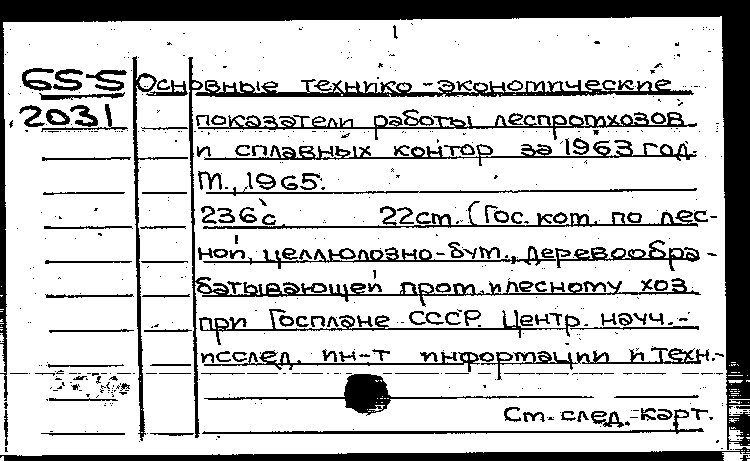 1
65-5 Основные технико-экономические
2031 показатели работы леспромхозов
и сплавных контор за 1963 год.
М., 1965.
236 с. 22 см. (Гос. ком. по лес-
ной, целлюлозно-бум., деревообра-
батывающей пром. и лесному хоз.
при Госплане СССР. Центр. науч.-
исслед. ин-т информации и техн.-
См. след. карт.